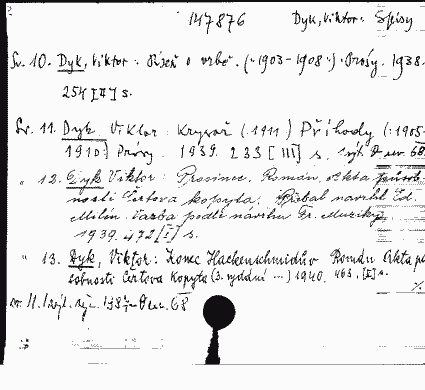 147876 Dyk, Viktor: Spisy
Sv. 10. Dyk, Viktor: Píseň o vrbě. (:1903-1908:) Prósy. 1938.
254 [II] s.
Sv. 11. Dyk Viktor: Krysař (:1911) Příhody (:1905-
1910:) Prósy. 1939. 233 [III] s.
" 12. Dyk Viktor: Prosinec. Román. Akta působ-
nosti Čertova kopyta. Obálku navrhl Ed.
Milén. Vazba podle návrhu Fr. Muziky.
1939. 472 [I] s.
" 13. Dyk, Viktor: Konec Hackenschmidův Román Akta pů
sobnosti Čertova kopyta (3. vydání ...) 1940. 463, [I] s.
68